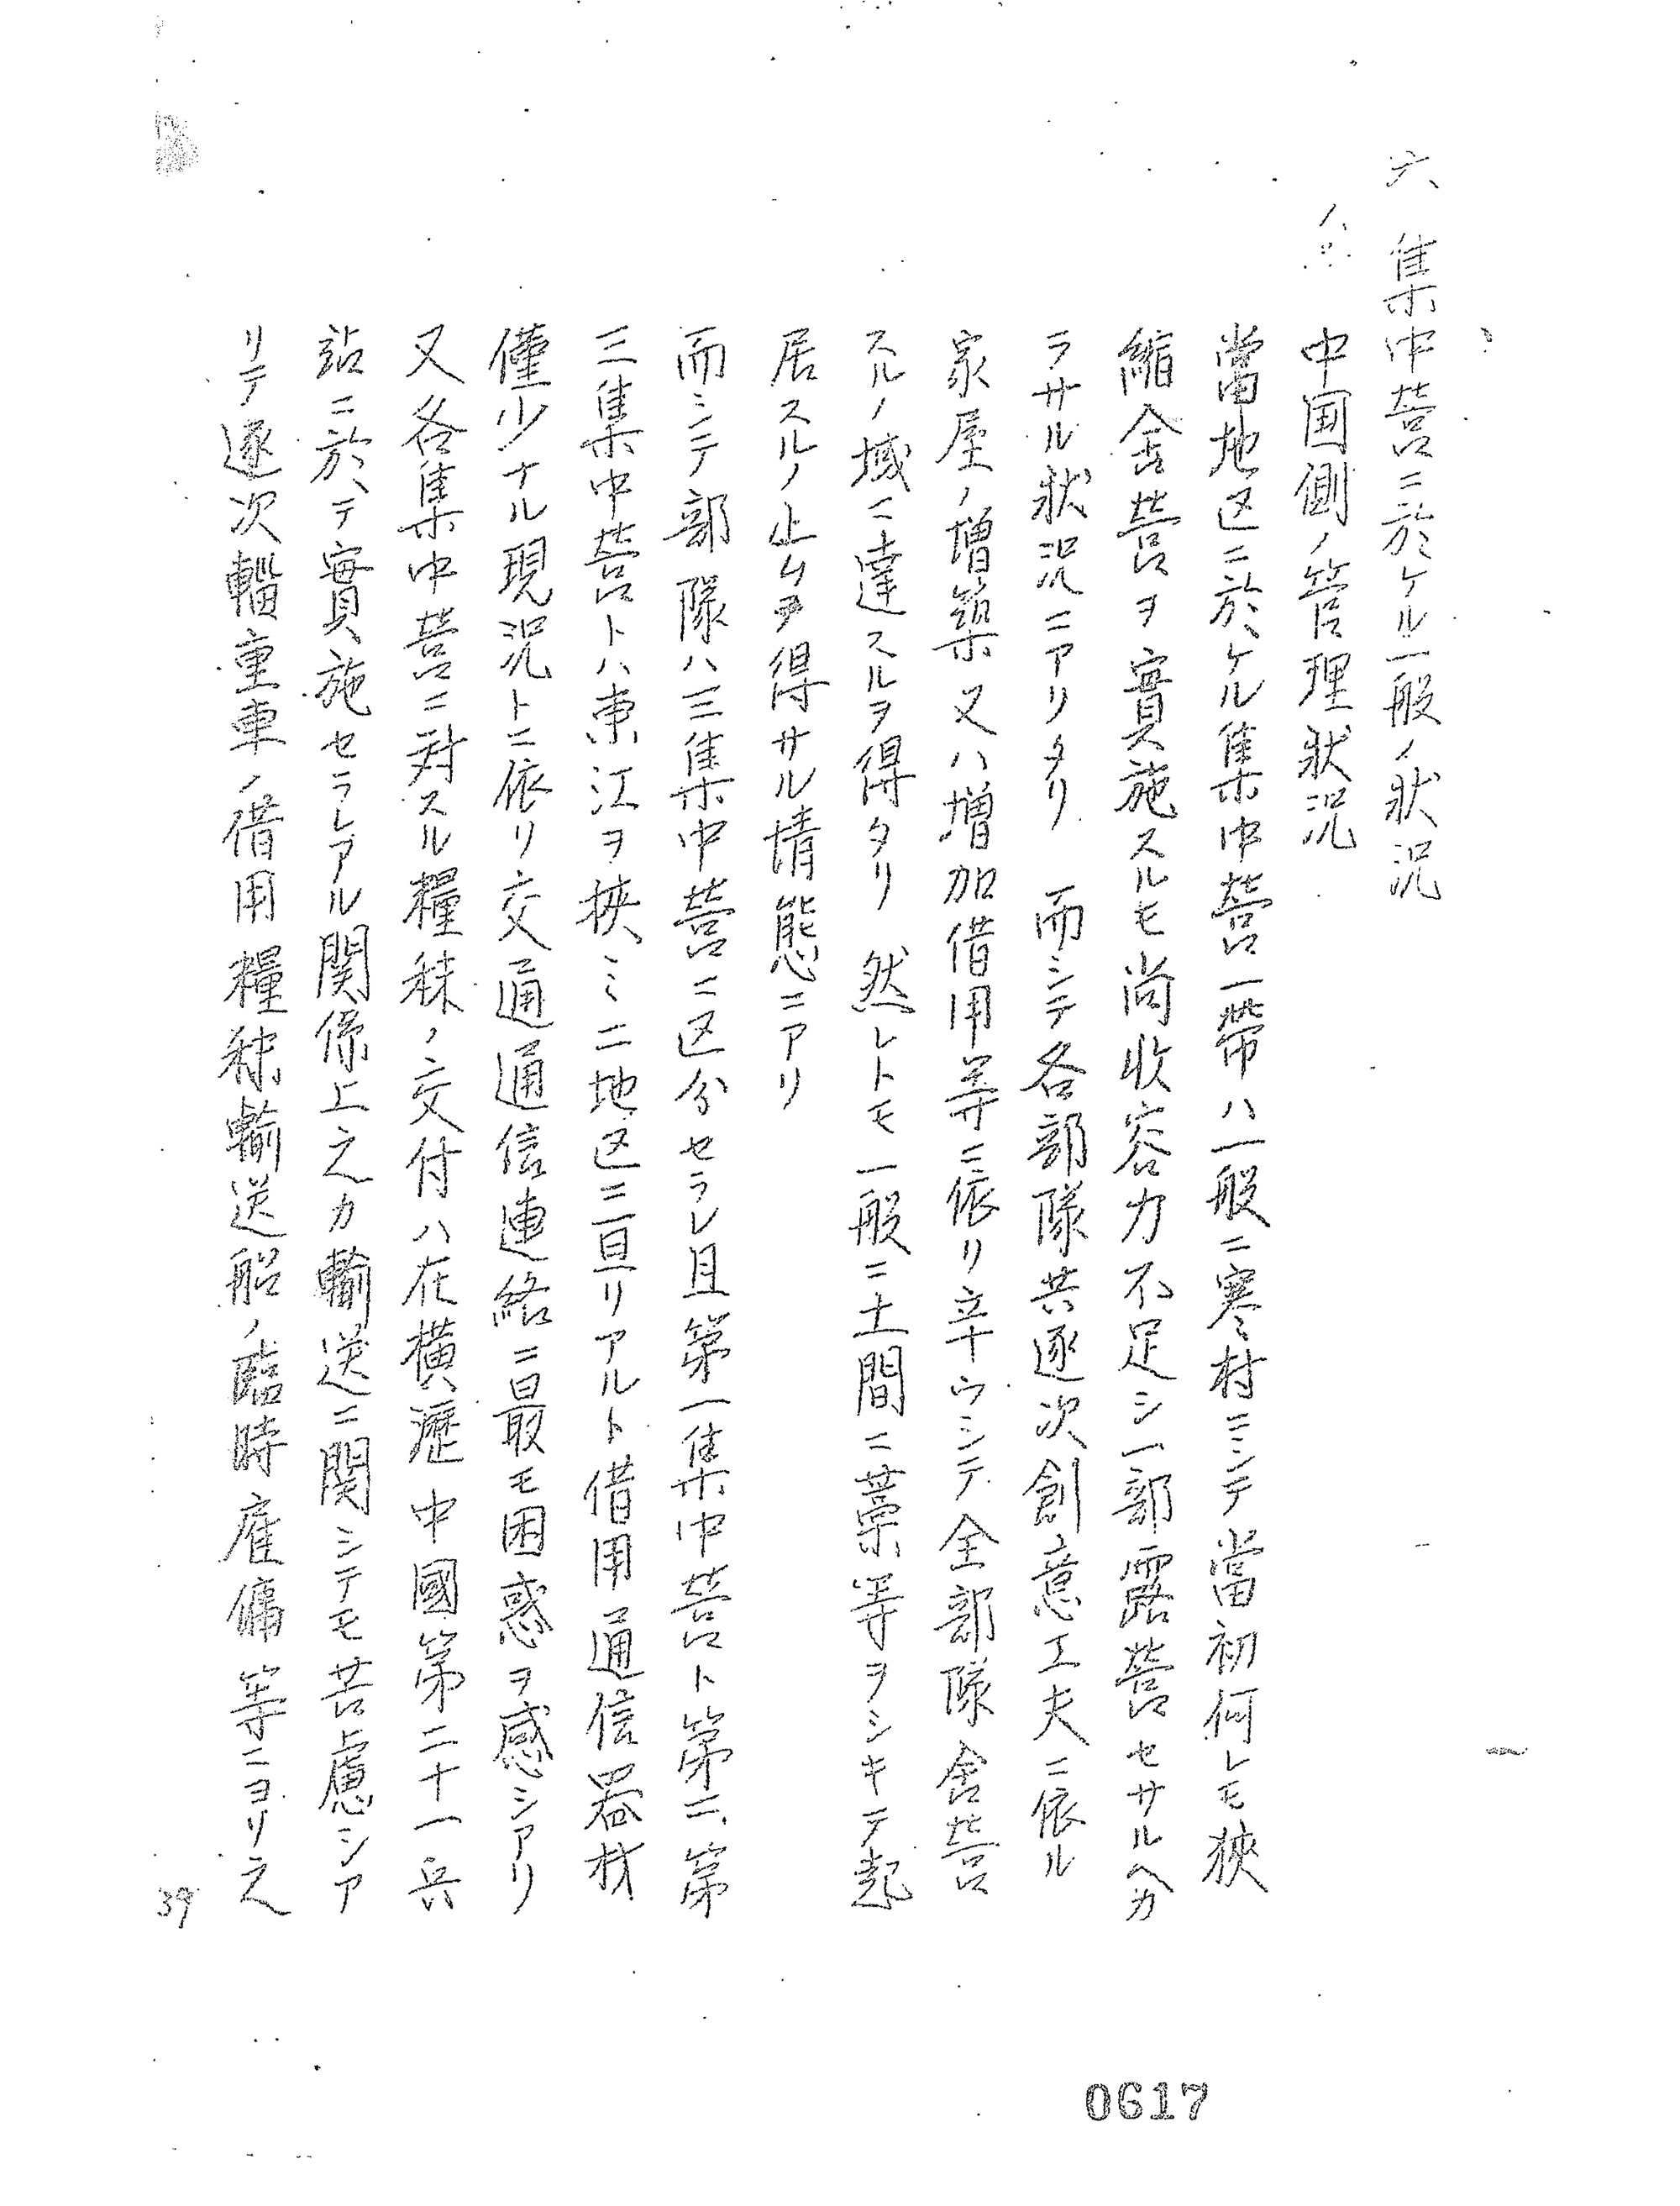 六、集中営ニ於ケル一般ノ状況
1. 中国側ノ管理状況
當地区ニ於ケル集中営一帯ハ一般ニ寒村ニシテ當初何レモ狭
縮舎営ヲ實施スルモ尚收容力不足シ一部露営セサルヘカ
ラサル狀況ニアリタリ 而シテ各部隊共逐次創意工夫ニ依ル
家屋ノ増築又ハ増加借用等ニ依リ辛ウシテ全部隊舎営
スルノ域ニ達スルヲ得タリ 然レトモ一般ニ土間ニ藁等ヲシキテ起
居スルノ止ムヲ得サル情態ニアリ
而シテ部隊ハ三集中営ニ区分セラレ且第一集中営ト第二、第
三集中営トハ東江ヲ挾ミ二地区ニ亘リアルト借用通信器材
僅少ナル現況トニ依リ交通通信連絡ニ最モ困惑ヲ感シアリ
又各集中営ニ対スル糧秣ノ交付ハ在横瀝中國第二十一兵
站ニ於テ實施セラレアル関係上之カ輸送ニ関シテモ苦慮シア
リテ逐次輜重車ノ借用糧秣輸送船ノ臨時雇傭等ニヨリ之
39
0617